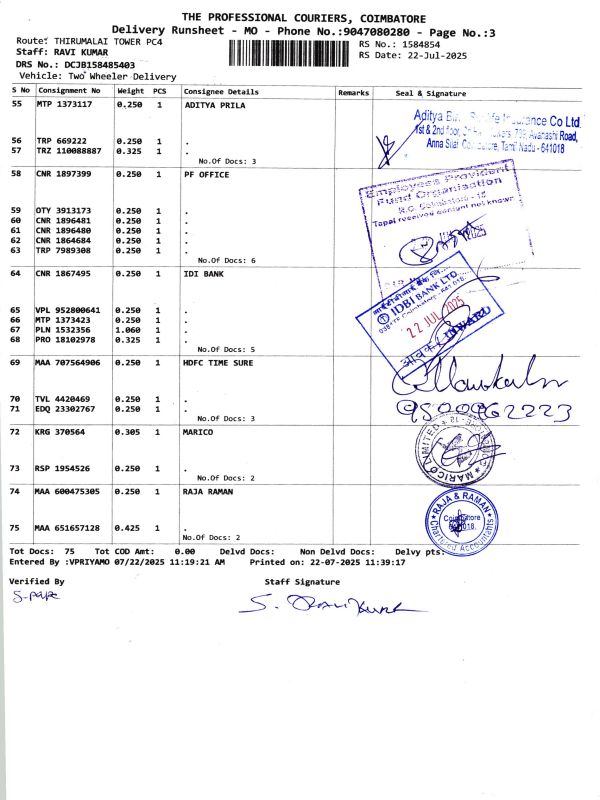 THE PROFESSIONAL COURIERS, COIMBATORE
Delivery Runsheet - MO - Phone No.:9047080280 - Page No.:3
Route: THIRUMALAI TOWER PC4
RS No.: 1584854
Staff: RAVI KUMAR
RS Date: 22-Jul-2025
DRS No.: DCJB158485403
Vehicle: Two Wheeler Delivery
S No Consignment No Weight PCS Consignee Details Remarks Seal & Signature
55 MTP 1373117 0.250 1 ADITYA PRILA
Insurance Co Ltd
1st & 2nd floor, Avanashi Road,
Coimbatore, Tamil Nadu - 641018
56 TRP 669222 0.250 1 .
57 TRZ 110088887 0.325 1 .
No.Of Docs: 3
58 CNR 1897399 0.250 1 PF OFFICE
Employees Provident
Fund Organisation
R.O. Coimbatore - 18
Tapal received content not known
59 OTY 3913173 0.250 1 .
60 CNR 1896481 0.250 1 .
61 CNR 1896480 0.250 1 .
62 CNR 1864684 0.250 1 .
63 TRP 7989308 0.250 1 .
No.Of Docs: 6
64 CNR 1867495 0.250 1 IDI BANK
IDBI BANK LTD.
22 JUL 2025
INWARD
65 VPL 952800641 0.250 1 .
66 MTP 1373423 0.250 1 .
67 PLN 1532356 1.060 1 .
68 PRO 18102978 0.325 1 .
No.Of Docs: 5
69 MAA 707564906 0.250 1 HDFC TIME SURE
9500962223
70 TVL 4420469 0.250 1 .
71 EDQ 23302767 0.250 1 .
No.Of Docs: 3
72 KRG 370564 0.305 1 MARICO
MARICO LIMITED
73 RSP 1954526 0.250 1 .
No.Of Docs: 2
74 MAA 600475305 0.250 1 RAJA RAMAN
RAJA & RAMAN
Coimbatore
Chartered Accountants
75 MAA 651657128 0.425 1 .
No.Of Docs: 2
Tot Docs: 75 Tot COD Amt: 0.00 Delvd Docs: Non Delvd Docs: Delvy pts:
Entered By :VPRIYAMO 07/22/2025 11:19:21 AM Printed on: 22-07-2025 11:39:17
Verified By
Staff Signature
S. Ravi Kumar